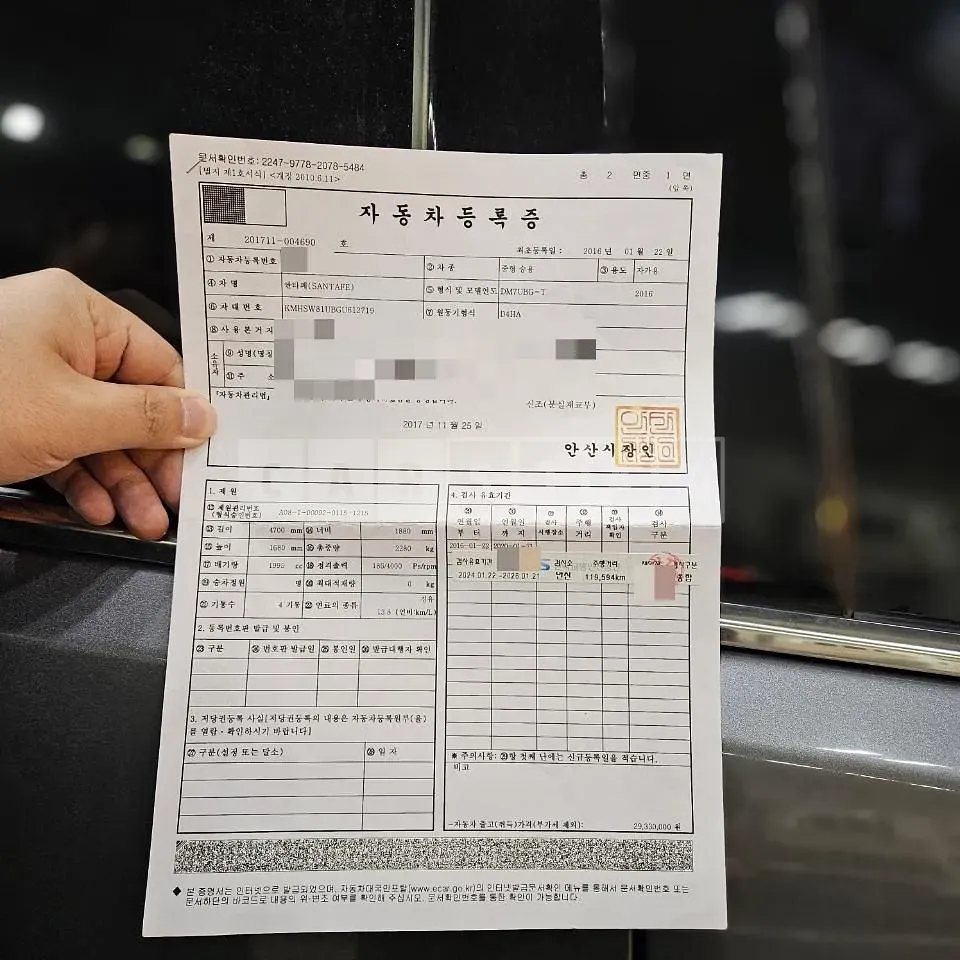 문서확인번호: 2247-9778-2078-5484
[별지 제1호서식] <개정 2010.6.11>
총 2 면중 1 면
(앞 쪽)
자 동 차 등 록 증
제 201711-004690 호
최초등록일 : 2016 년 01 월 22 일
① 자동차등록번호 ② 차 종 중형 승용 ③ 용도 자가용
④ 차 명 싼타페(SANTAFE) ⑤ 형식 및 모델연도 DM7UBG-T 2016
⑥ 차 대 번 호 KMHSW81UBGU612719 ⑦ 원동기형식 D4HA
⑧ 사 용 본 거 지
소유자 ⑨ 성명(명칭
⑪ 주 소
「자동차관리법」
신조(분실재교부)
2017 년 11 월 25 일
안 산 시 장
1. 제 원
⑫ 제원관리번호
(형식승인번호) A08-1-00092-0115-1215
⑬ 길이 4700 mm ⑭ 너비 1880 mm
⑮ 높이 1680 mm ⑯ 총중량 2280 kg
⑰ 배기량 1995 cc ⑱ 정격출력 186/4000 Ps/rpm
⑲ 승차정원 명 ⑳ 최대적재량 0 kg
㉑ 기통수 4 기통 ㉒ 연료의 종류 경유
13.8 (연비:km/L)
2. 등록번호판 발급 및 봉인
㉓ 구분 ㉔ 번호판 발급일 ㉕ 봉인일 ㉖ 발급대행자 확인
3. 저당권등록 사실[저당권등록의 내용은 자동차등록원부(을)
를 열람·확인하시기 바랍니다]
㉗ 구분(설정 또는 말소) ㉘ 일 자
4. 검사 유효기간
㉙ 연월일 부터 연월일 까지 검사 시행장소 주행 거리 검사 책임자 확인 검사 구분
2016-01-22 2020-01-21
검사유효기간 검사소 주행거리 검사구분
2024.01.22 -2026.01.21 119,594km 종합
※ 주의사항: ㉙항 첫째 난에는 신규등록일을 적습니다.
비고
-자동차 출고(취득)가격(부가세 제외): 29,330,000 원
◆ 본 증명서는 인터넷으로 발급되었으며, 자동차대국민포털(www.ecar.go.kr)의 인터넷발급문서확인 메뉴를 통해서 문서확인번호 또는
문서하단의 바코드로 내용의 위·변조 여부를 확인해 주십시오. 문서확인번호를 통한 확인이 가능합니다.